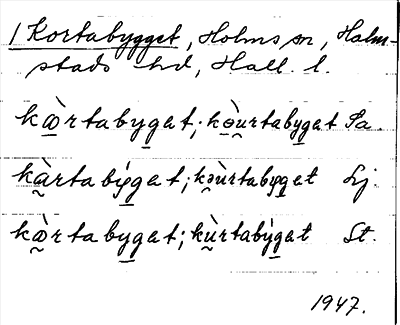 1 Kortabygget, Holms sn, Halm-
stads hd, Hall. l.
kæ̀rtabyget; kəùrtabyget Sa.
kàrtabýget; kəùrtabyget Lj.
kæ̀rtabyget; kùrtabỳget St.
1947.